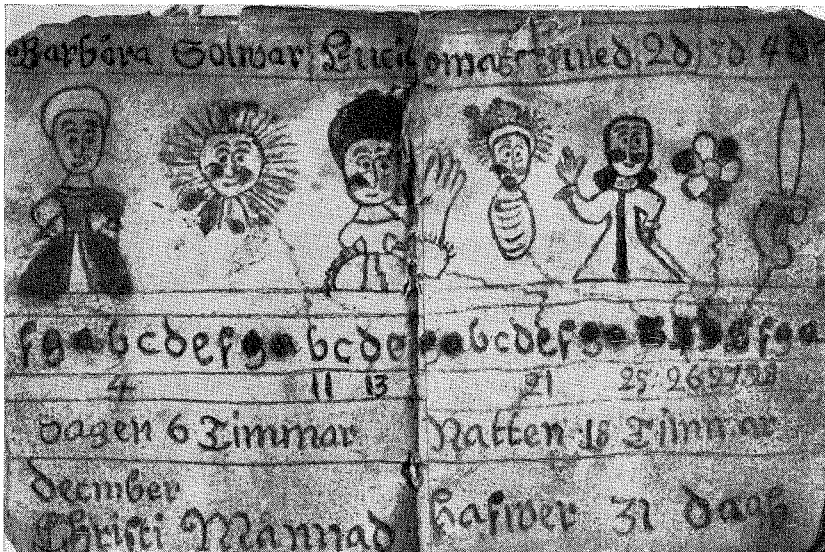 Barbára Solwar Lucie omas Juled 2d 3d 4d
fgabcdefgabcdefgabcdefga fga
4 11 13 21 25 26 27 28
dagen 6 Timmar Natten 18 Timmar
decmber
Christi Månnad hafwer 31 daag